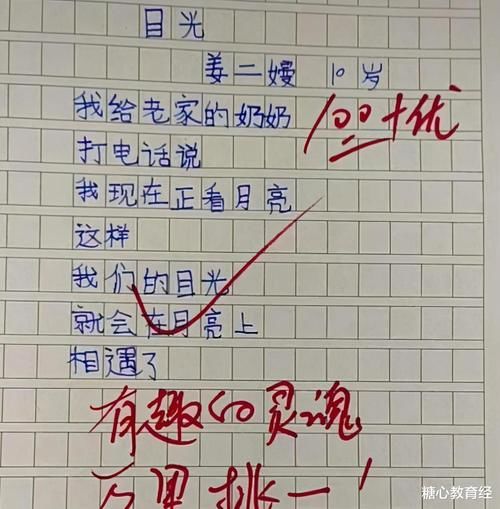 目光
姜二嫚 10岁
我给老家的奶奶
100+优
打电话说
我现在正看月亮
这样
我们的目光
就会在月亮上
相遇了
有趣的灵魂
万里挑一！
糖心教育经